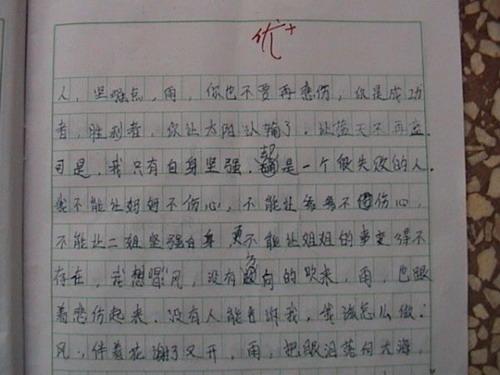 优+
人,坚强点,雨,你也不要再悲伤,你是成功
者,胜利者,你让太阳认输了,让蓝天不再蓝。
可是,我只有自身坚强,却是一个很失败的人。
我不能让妈妈不伤心,不能让爸爸不伤心,
不能让二姐坚强自身,更不能让姐姐的事变得不
存在,我想唱风,没有方向的吹来,雨,也跟
着悲伤起来,没有人能告诉我,我该怎么做:
风,伴着花谢了又开,雨,把眼泪落向大海,